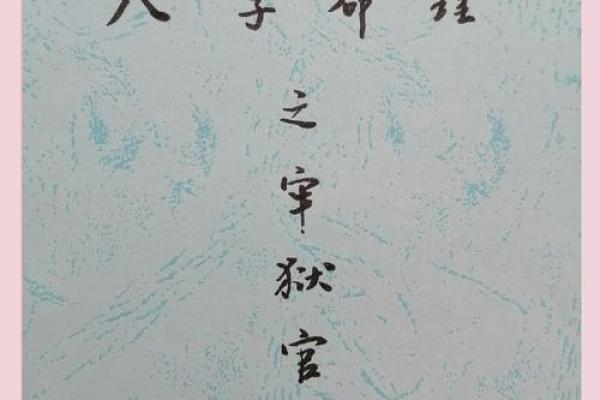 八字命理
之
牢
狱
官